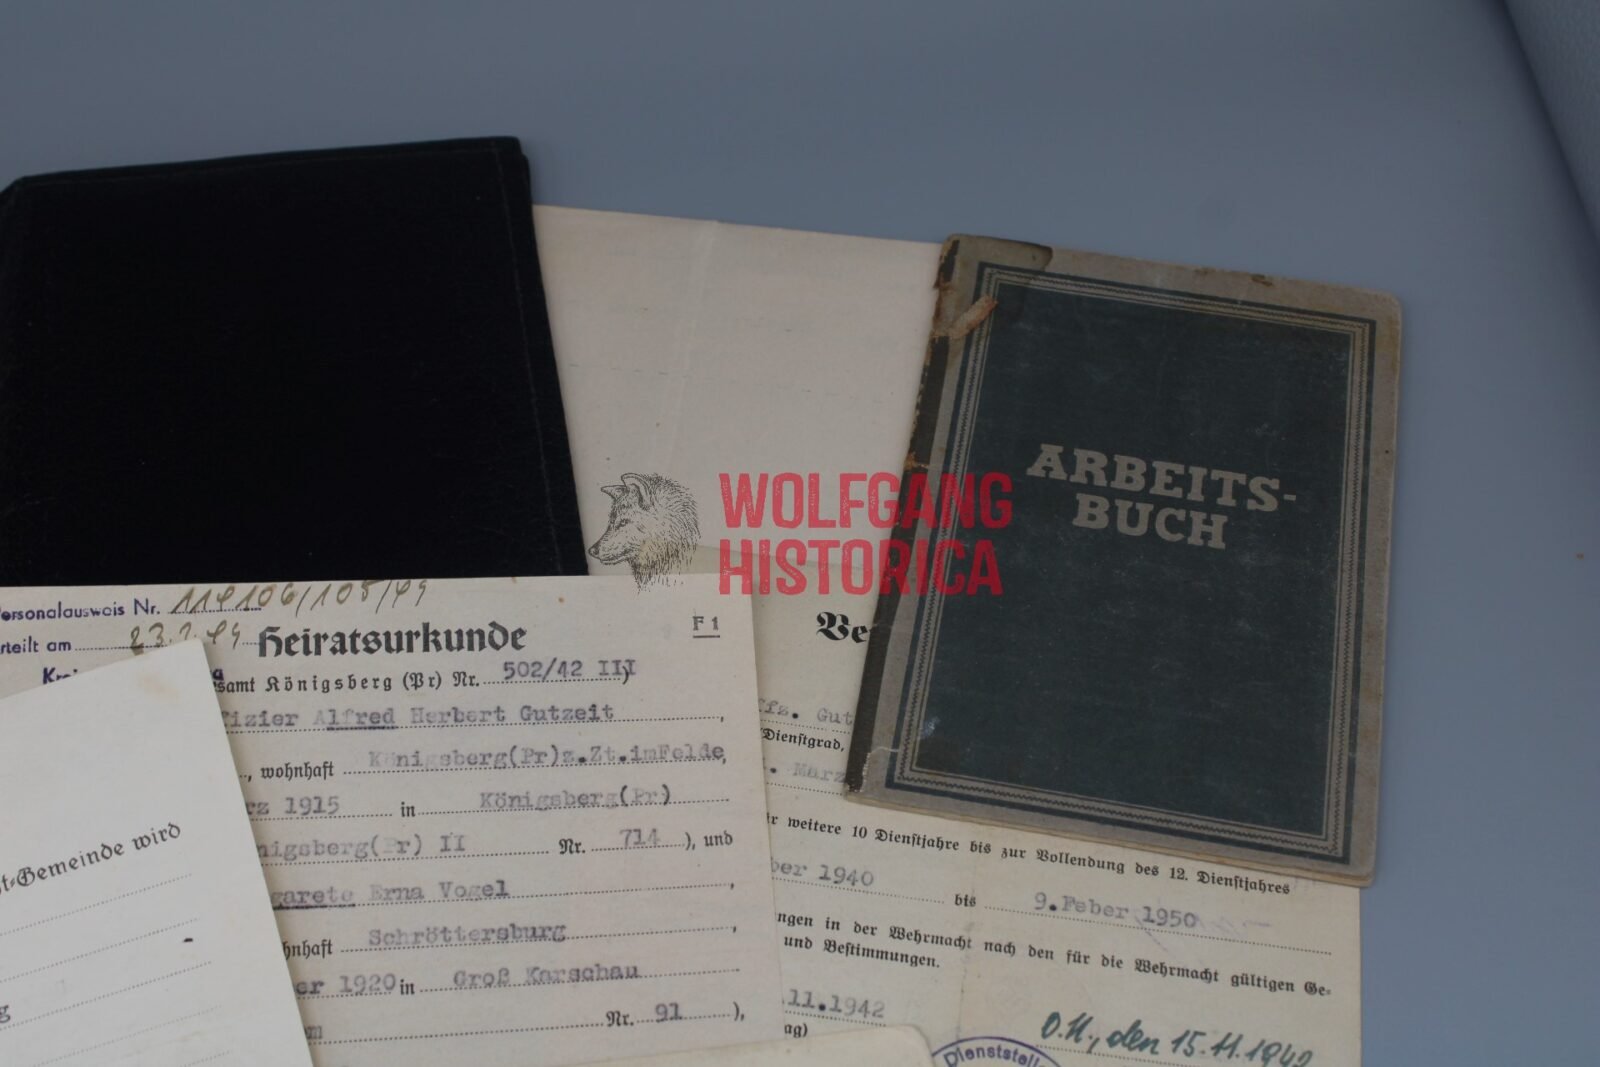 ARBEITS-
BUCH
WOLFGANG
HISTORICA
ersonalausweis Nr. 114106/105/49
rteilt am
Heiratsurkunde
F 1
samt Königsberg (Pr) Nr. 502/42 III)
fizier Alfred Herbert Gutzeit,
, wohnhaft Königsberg(Pr)z.Zt.imFelde,
rz 1915 in Königsberg(Pr)
nigsberg(Pr) II Nr. 714), und
garete Erna Vogel,
hnhaft Schröttersburg,
er 1920 in Groß Karschau
Nr. 91),
t-Gemeinde wird
g
Ve
ffz. Gut
(Dienstgrad,
. März
r weitere 10 Dienstjahre bis zur Vollendung des 12. Dienstjahres
ber 1940 bis 9.Feber 1950
ngen in der Wehrmacht nach den für die Wehrmacht gültigen Ge-
und Bestimmungen.
.11.1942
ag)
O.U., den 15.11.1942
Dienststelle